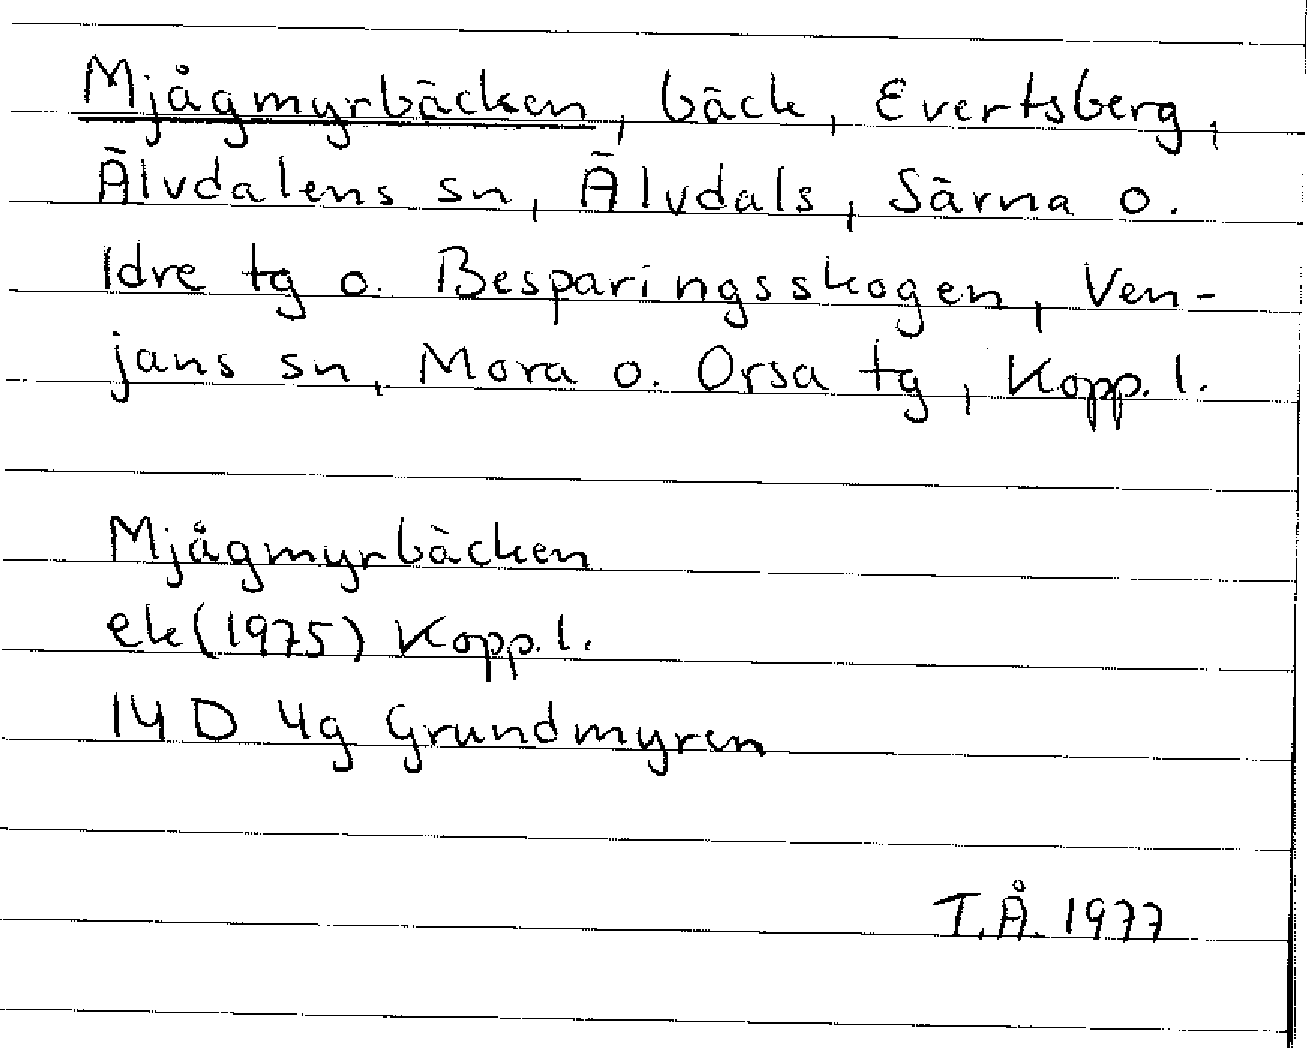 Mjågmyrbäcken, bäck, Evertsberg,
Älvdalens sn, Älvdals, Särna o.
Idre tg o. Besparingsskogen, Ven-
jans sn, Mora o. Orsa tg, Kopp. l.
Mjågmyrbäcken
ek (1975) Kopp. l.
14 D 4g Grundmyren
I.Å. 1977